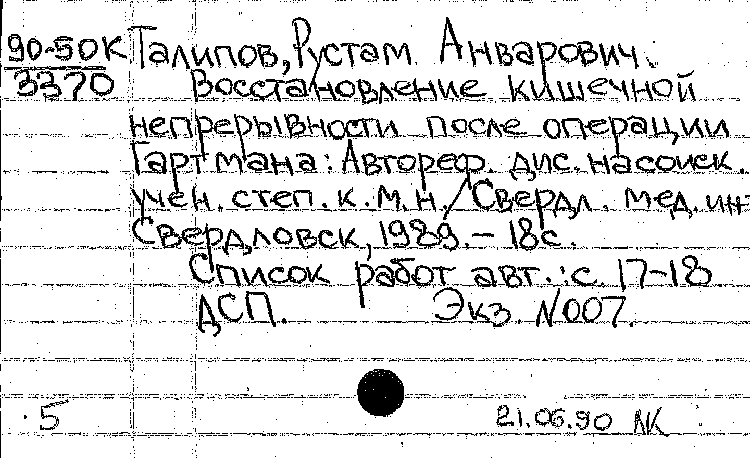 90-50К Талипов, Рустам Анварович.
3370 Восстановление кишечной
непрерывности после операции
Гартмана: Автореф. дис. на соиск.
учен. степ. к.м.н. / Свердл. мед. ин-
Свердловск, 1989. – 18 с.
Список работ авт.: с. 17-18
ДСП. Экз. №007.
5 21.06.90 ЛК